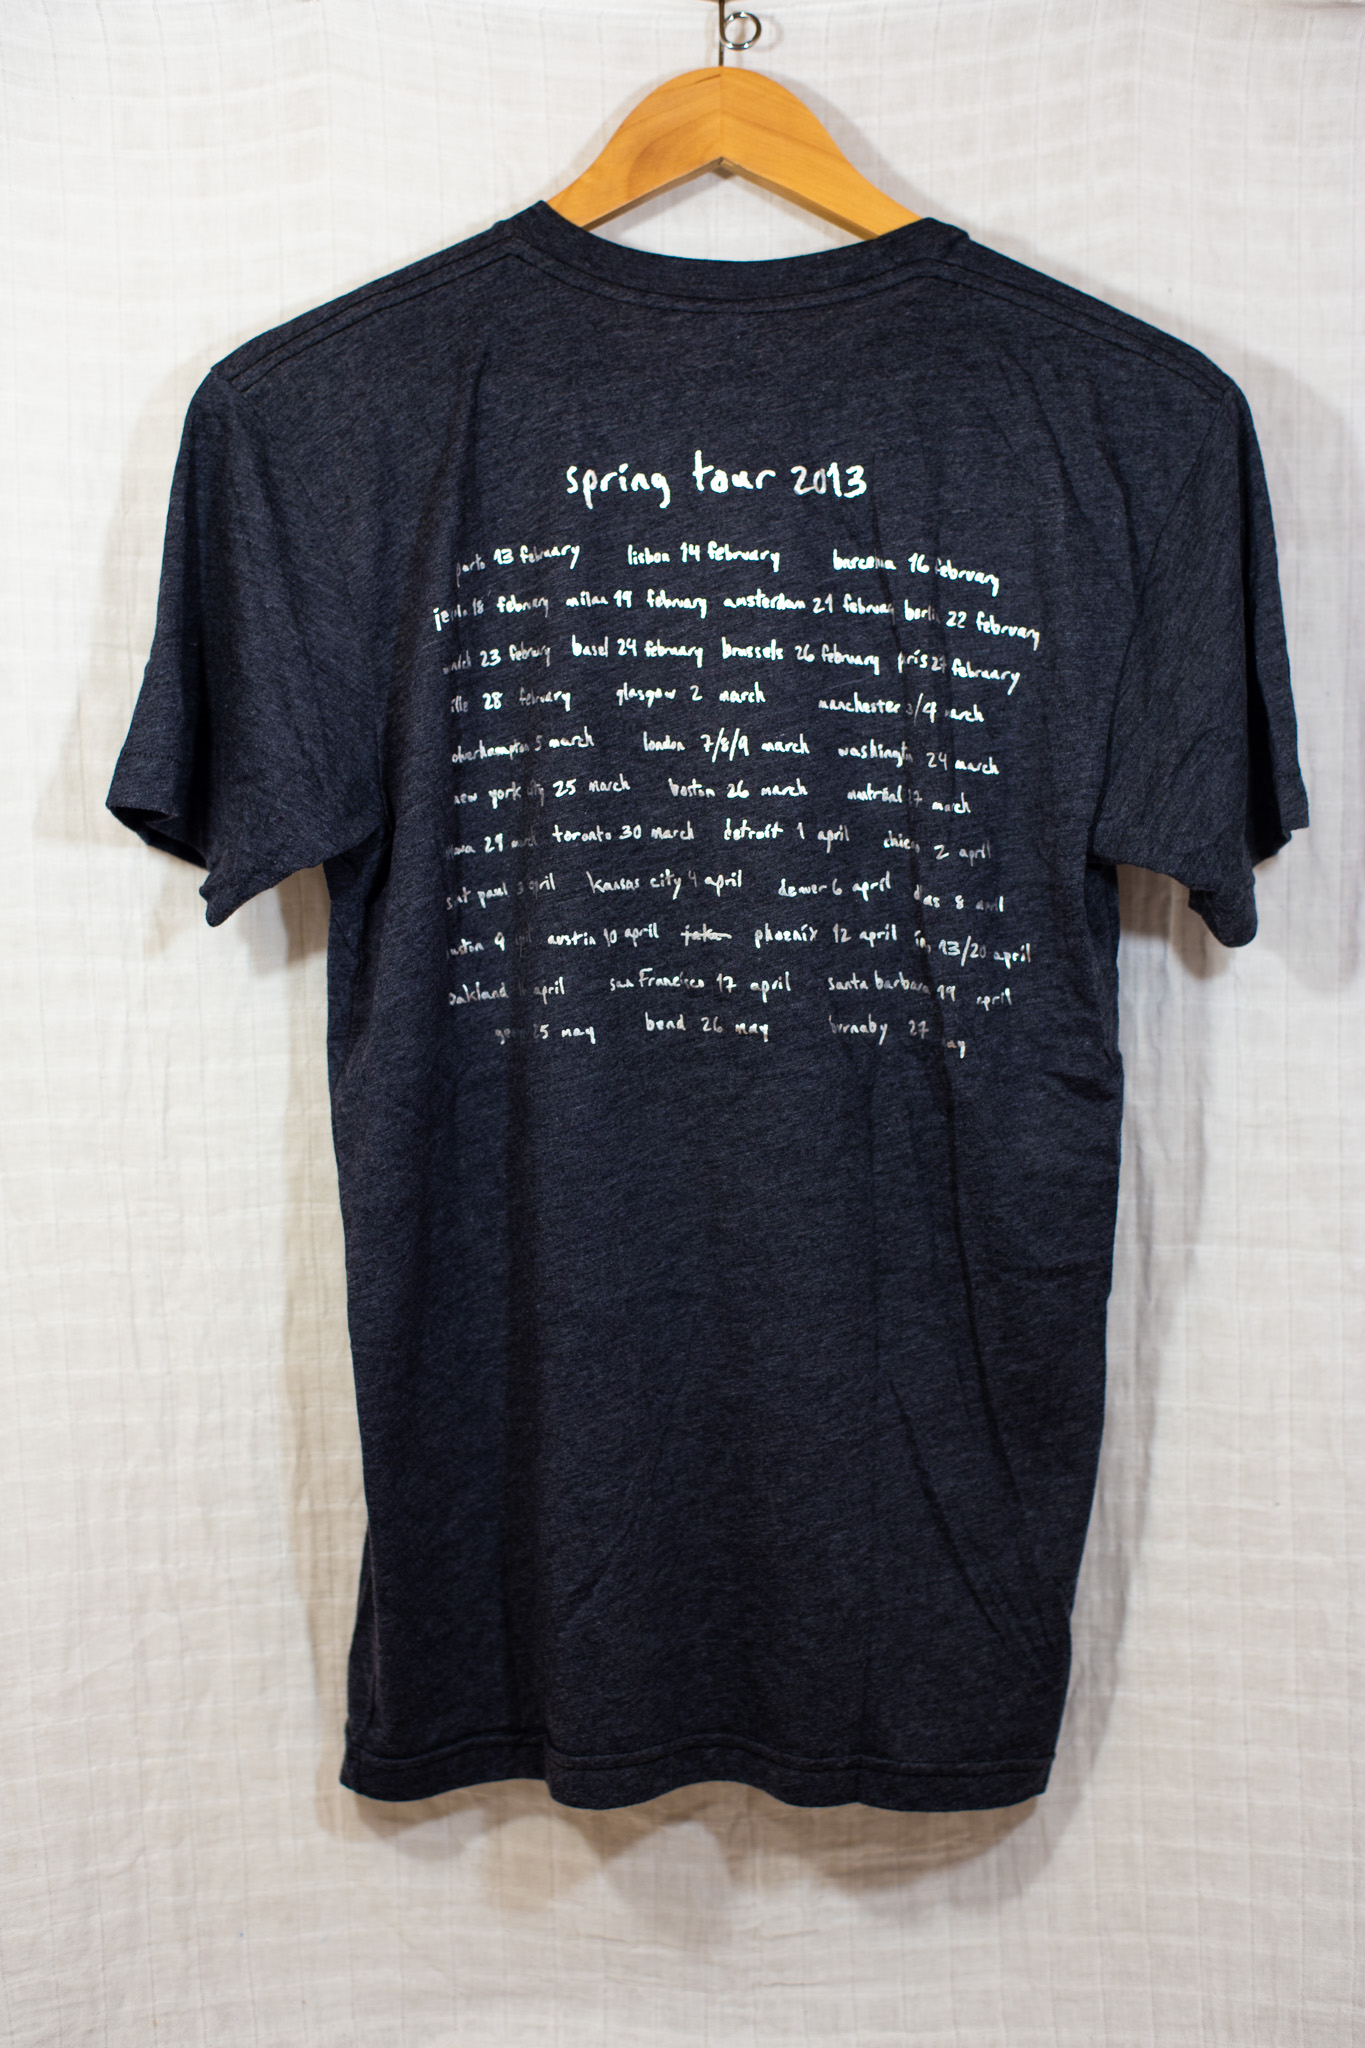 spring tour 2013
porto 13 february lisbon 14 february barcelona 16 february
18 february milan 19 february amsterdam 21 february berlin 22 february
23 february basel 24 february brussels 26 february pris 27 february
28 february glasgow 2 march manchester 3/4 march
5 march london 7/8/9 march washington 24 march
new york city 25 march boston 26 march montréal march
29 march toronto 30 march detroit 1 april chicago 2 april
paul 3 april kansas city 4 april denver 6 april 8 april
9 austin 10 april phoenix 12 april 13/20 april
oakland april san francisco 17 april santa barbara 19 april
25 may bend 26 may burnaby 27 may